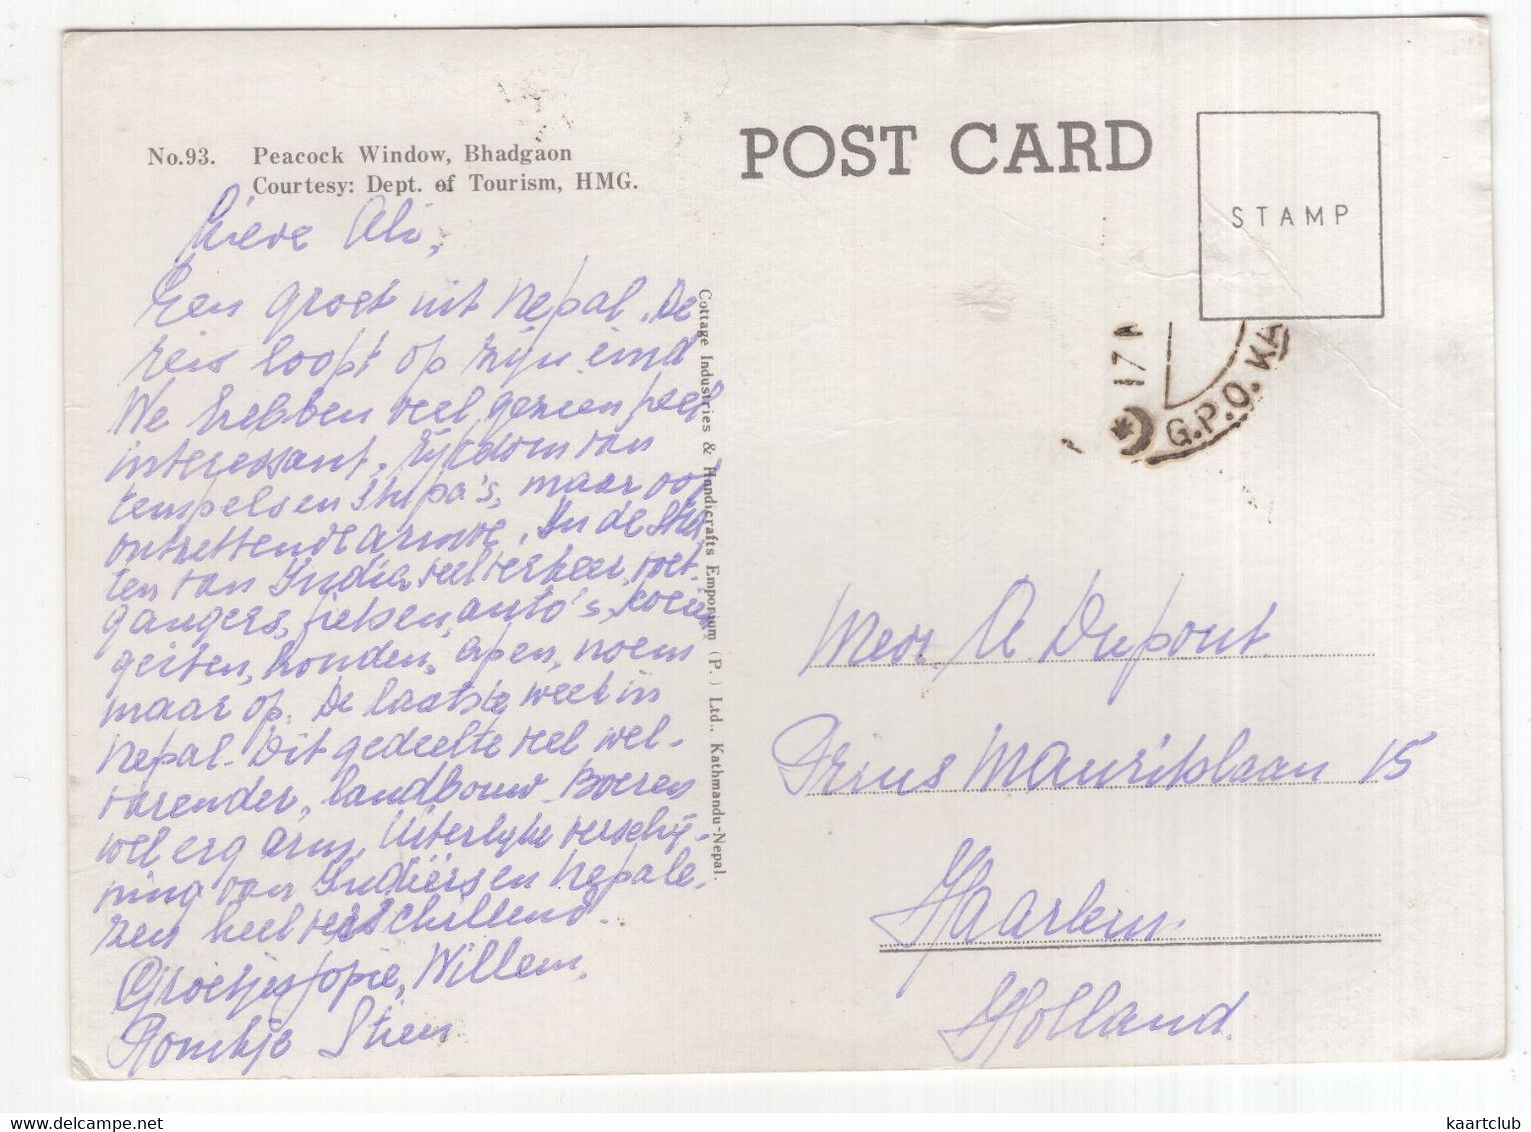 No.93. Peacock Window, Bhadgaon
Courtesy: Dept. of Tourism, HMG.
Lieve Ali,
Een groet uit Nepal. De
reis loopt op zijn eind
We hebben veel gezien heel
interessant. Rijkdom van
tempels en stupa's, maar ook
ontzettende armoe. In de ste
ten van India veel verkeer, voet-
gangers, fietsen, auto's, koeien
geiten, honden, apen, noem
maar op. De laatste week in
Nepal. Dit gedeelte veel wel-
varender, landbouw. Boeren
wel erg arm. Uiterlijke verschij-
ning van Indiërs en Nepale-
zen heel verschillend.
Groetjes Jopie, Willem,
Romkje Stien
Cottage Industries & Handicrafts Emporium (P.) Ltd., Kathmandu-Nepal.
POST CARD
STAMP
17
G.P.O. KA
Mevr. A Dupont
Prins Mauritslaan 15
Haarlem.
Holland.
kaartclub